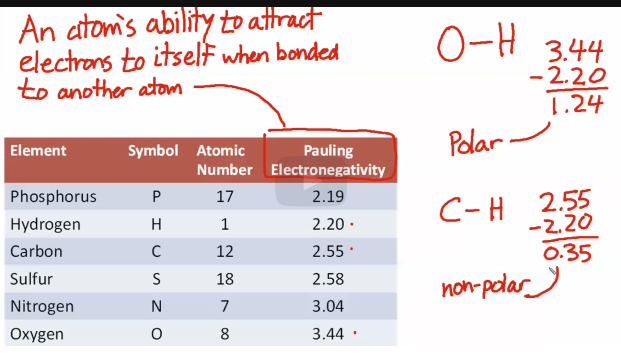 An atom's ability to attract
electrons to itself when bonded
to another atom
Element Symbol Atomic Number Pauling Electronegativity
Phosphorus P 17 2.19
Hydrogen H 1 2.20
Carbon C 12 2.55
Sulfur S 18 2.58
Nitrogen N 7 3.04
Oxygen O 8 3.44
O-H
3.44
-2.20
1.24
Polar
C-H
2.55
-2.20
0.35
non-polar